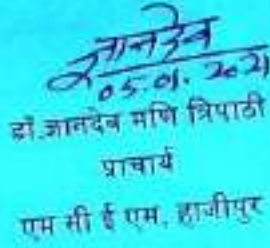 ज्ञानदेव
05.01.2021
डॉ.ज्ञानदेव मणि त्रिपाठी
प्राचार्य
एम सी ई एम, हाजीपुर